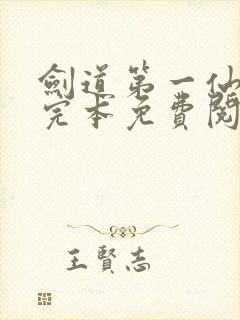 劍道第一仙
完本免費閱
王賢志